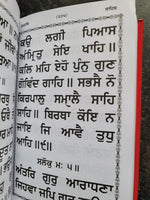 ਕਉ ਲਗੀ ਪਿਆਸ
ਅੰਮ੍ਰਿਤੁ ਸੇਇ ਖਾਹਿ ॥
ਕਲਿ ਮਹਿ ਏਹੋ ਪੁੰਨੁ ਗੁਣ
ਗੋਵਿੰਦ ਗਾਹਿ ॥ ਸਭਸੈ ਨੋ
ਕਿਰਪਾਲੁ ਸਮ੍ਹਾਲੇ ਸਾਹਿ
ਸਾਹਿ ॥ ਬਿਰਥਾ ਕੋਇ ਨ
ਜਾਇ ਜਿ ਆਵੈ ਤੁਧੁ
ਆਹਿ ॥੯॥
ਸਲੋਕੁ ਮਃ ੫ ॥
ਅੰਤਰਿ ਗੁਰੁ ਆਰਾਧਣਾ
ਜਿਹਵਾ ਜਪਿ ਗੁਰ